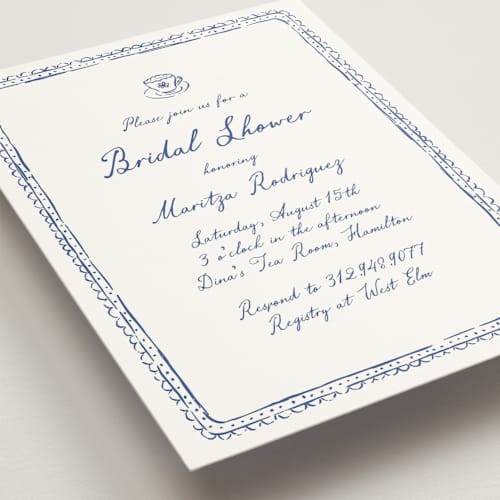 Please join us for a
Bridal Shower
honoring
Maritza Rodriguez
Saturday, August 15th
3 o'clock in the afternoon
Dina's Tea Room, Hamilton
Respond to 312.948.9077
Registry at West Elm